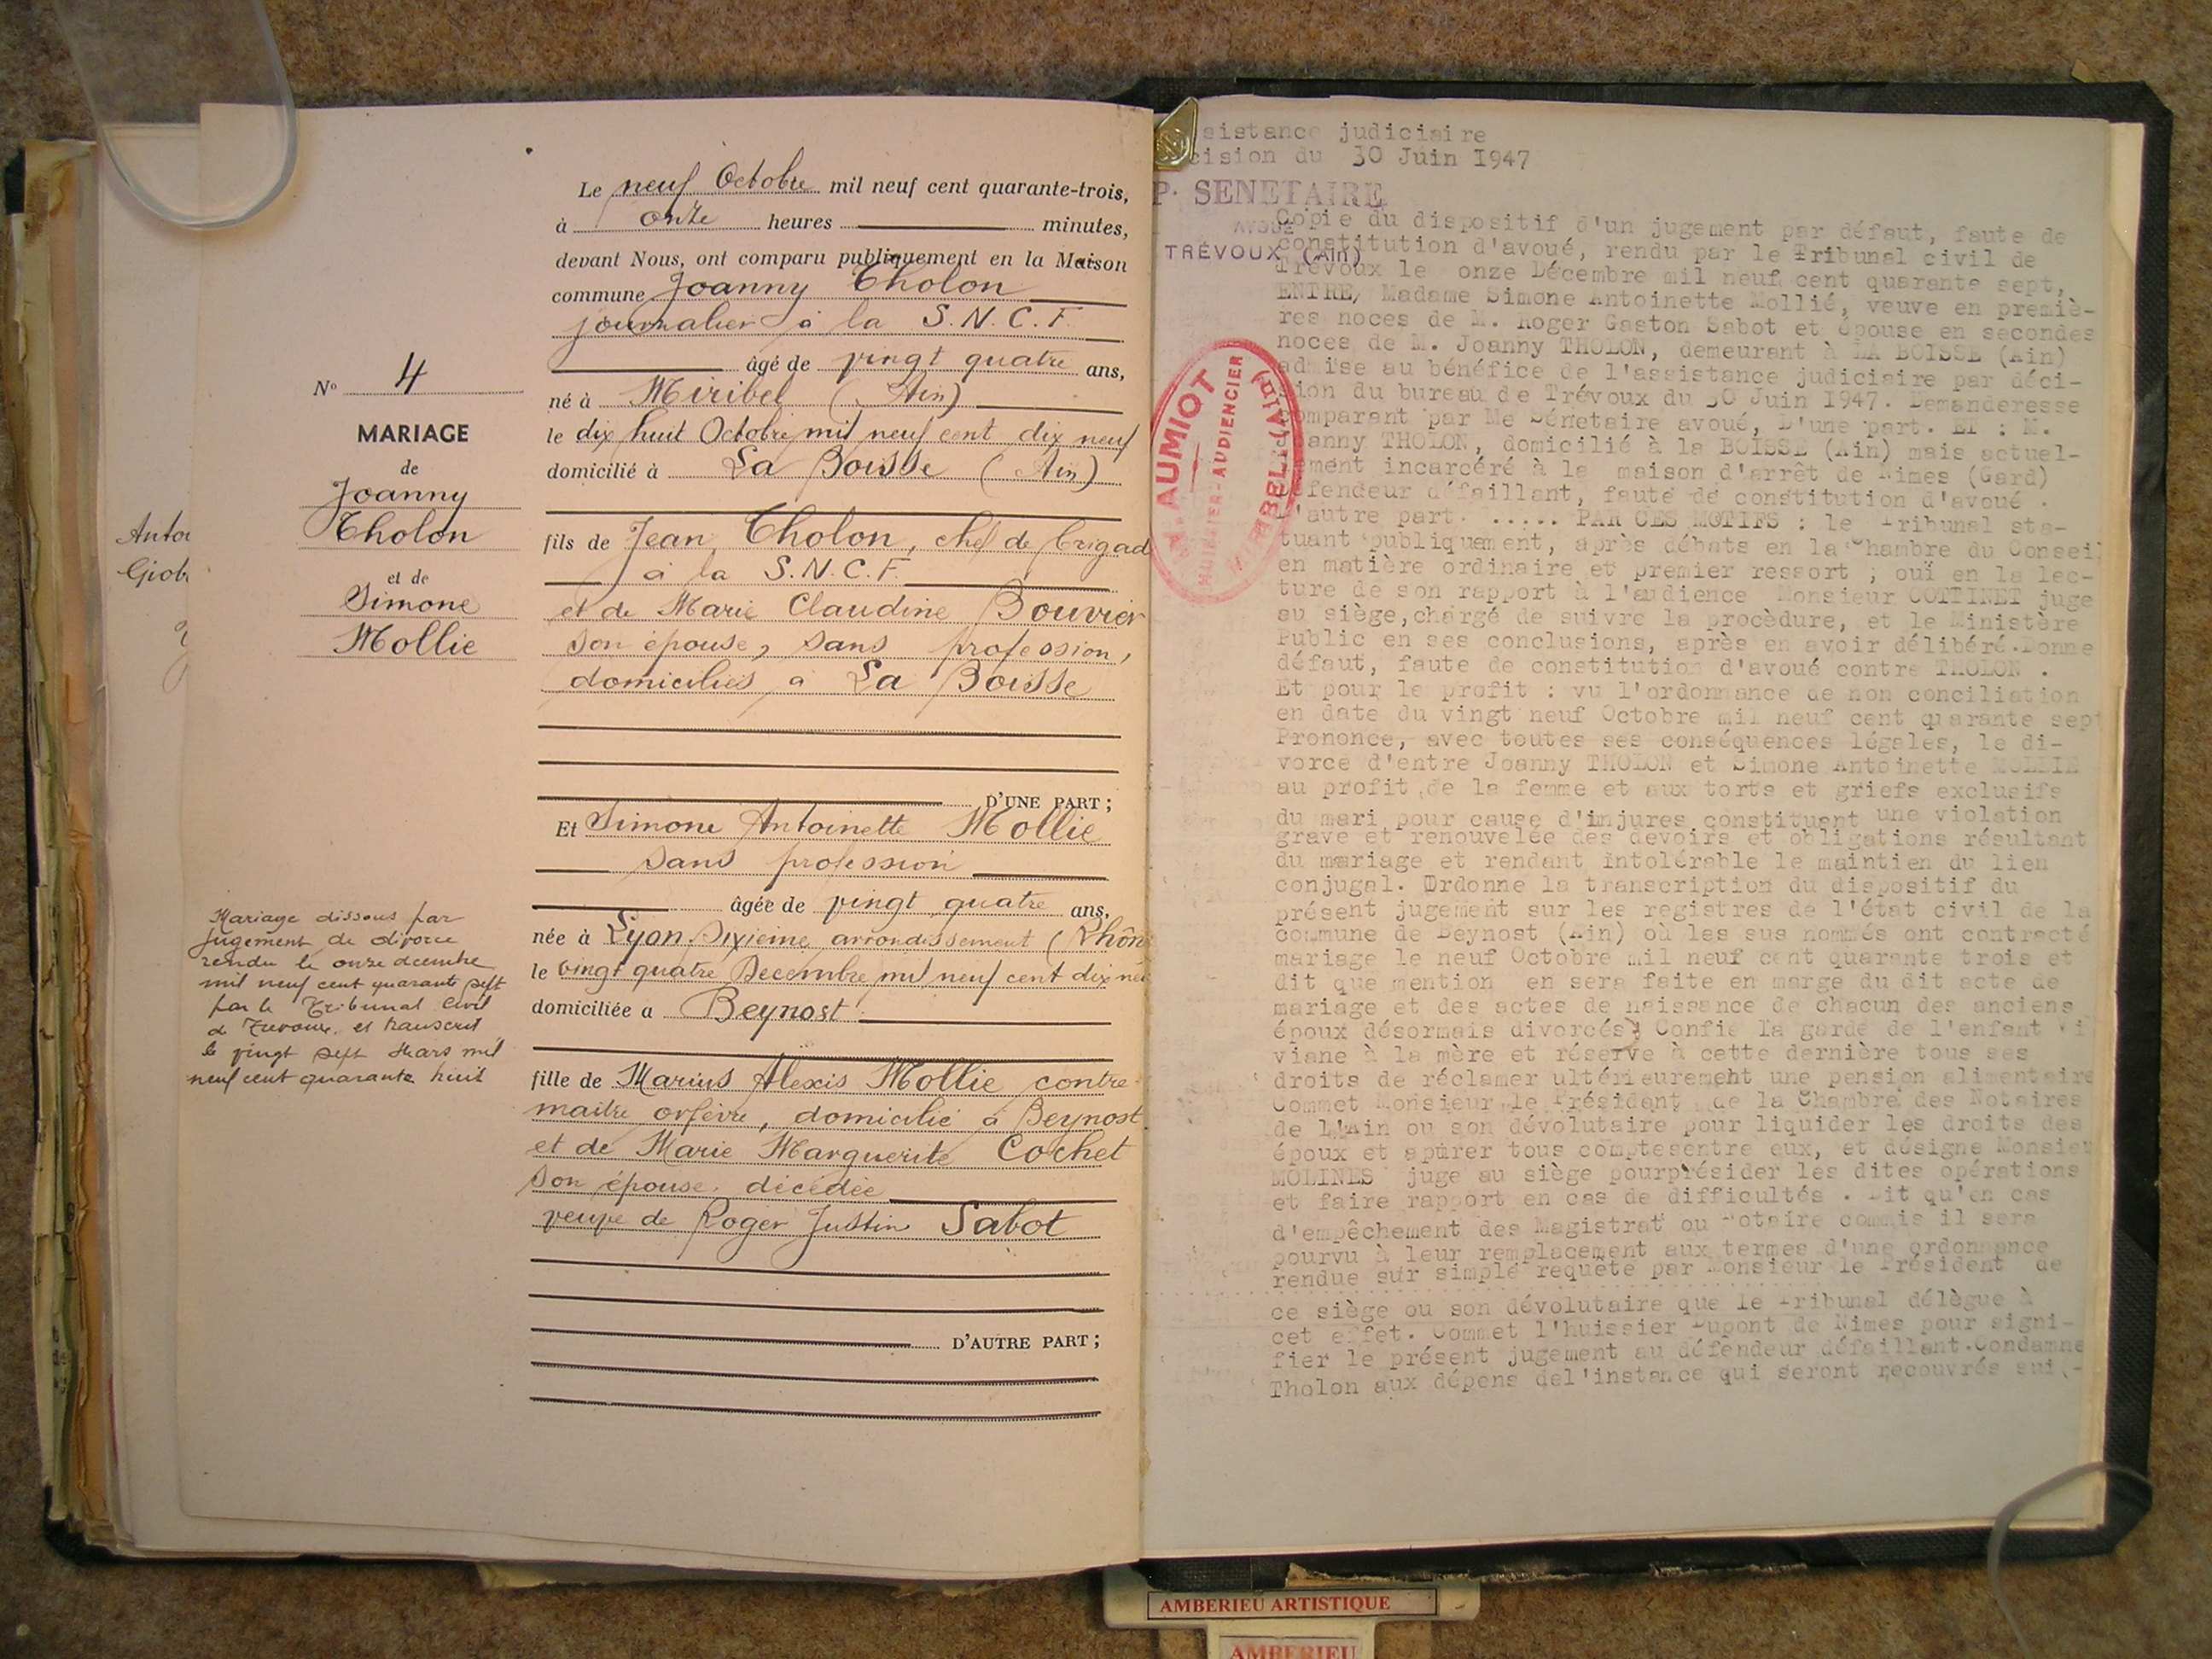 Antoi
Giob
N° 4
MARIAGE
de
Joanny
Tholon
et de
Simone
Mollie
Mariage dissous par
jugement de divorce
rendu le onze decembre
mil neuf cent quarante sept
par le Tribunal Civil
de Trevoux et transcrit
le vingt sept Mars mil
neuf cent quarante huit
Le neuf Octobre mil neuf cent quarante-trois,
à onze heures minutes,
devant Nous, ont comparu publiquement en la Maison
commune Joanny Tholon
journalier à la S.N.C.F.
âgé de vingt quatre ans,
né à Miribel (Ain)
le dix huit Octobre mil neuf cent dix neuf
domicilié à La Boisse (Ain)
fils de Jean Tholon, chef de brigad
à la S.N.C.F.
et de Marie Claudine Bouvier
son épouse, sans profession,
domiciliés à La Boisse
D'UNE PART ;
Et Simone Antoinette Mollie
sans profession
âgée de vingt quatre ans,
née à Lyon Sixième arrondissement (Rhôn
le vingt quatre Decembre mil neuf cent dix ne
domiciliée a Beynost
fille de Marius Alexis Mollie contre
maitre orfèvre, domicilié à Beynost
et de Marie Marguerite Cochet
son épouse, décédée
veuve de Roger Justin Sabot
D'AUTRE PART ;
sistance judiciaire
cision du 30 Juin 1947
P. SENETAIRE
AVOUÉ
TRÉVOUX (Ain)
Copie du dispositif d'un jugement par défaut, faute de
constitution d'avoué, rendu par le Tribunal civil de
Trévoux le onze Décembre mil neuf cent quarante sept,
ENTRE, Madame Simone Antoinette Mollié, veuve en premiè-
res noces de M. Roger Gaston Sabot et épouse en secondes
noces de M. Joanny THOLON, demeurant à LA BOISSE (Ain)
admise au bénéfice de l'assistance judiciaire par déci-
sion du bureau de Trévoux du 30 Juin 1947. Demanderesse
comparant par Me Sénetaire avoué, D'une part. ET : M.
Joanny THOLON, domicilié à la BOISSE (Ain) mais actuel-
lement incarcéré à la maison d'arrêt de Nimes (Gard)
défendeur défaillant, faute de constitution d'avoué .
D'autre part. ..... PAR CES MOTIFS : le Tribunal sta-
tuant publiquement, après débats en la Chambre du Conseil
en matière ordinaire et premier ressort ; ouï en la lec-
ture de son rapport à l'audience Monsieur COTTINET juge
au siège,chargé de suivre la procèdure, et le Ministère
Public en ses conclusions, après en avoir délibéré.Donne
défaut, faute de constitution d'avoué contre THOLON .
Et pour le profit : vu l'ordonnance de non conciliation
en date du vingt neuf Octobre mil neuf cent quarante sept
Prononce, avec toutes ses conséquences légales, le di-
vorce d'entre Joanny THOLON et Simone Antoinette MOLLIE
au profit de la femme et aux torts et griefs exclusifs
du mari pour cause d'injures constituant une violation
grave et renouvelée des devoirs et obligations résultant
du mariage et rendant intolérable le maintien du lien
conjugal. Ordonne la transcription du dispositif du
présent jugement sur les registres de l'état civil de la
commune de Beynost (Ain) où les sus nommés ont contracté
mariage le neuf Octobre mil neuf cent quarante trois et
dit que mention en sera faite en marge du dit acte de
mariage et des actes de naissance de chacun des anciens
époux désormais divorcés; Confie la garde de l'enfant Vi
viane à la mère et réserve à cette dernière tous ses
droits de réclamer ultérieurement une pension alimentaire
Commet Monsieur le Président de la Chambre des Notaires
de L'Ain ou son dévolutaire pour liquider les droits des
époux et apurer tous comptesentre eux, et désigne Monsieu
MOLINES juge au siège pourprésider les dites opérations
et faire rapport en cas de difficultés . Dit qu'en cas
d'empêchement des Magistrat ou Notaire commis il sera
pourvu à leur remplacement aux termes d'une ordonnance
rendue sur simple requête par Monsieur le Président de
ce siège ou son dévolutaire que le Tribunal délègue à
cet effet. Commet l'huissier Dupont de Nimes pour signi-
fier le présent jugement au défendeur défaillant.Condamne
Tholon aux dépens del'instance qui seront recouvrés sui-
AUMIOT
HUISSIER-AUDIENCIER
MIRIBEL (Ain)
AMBERIEU ARTISTIQUE
AMBERIEU